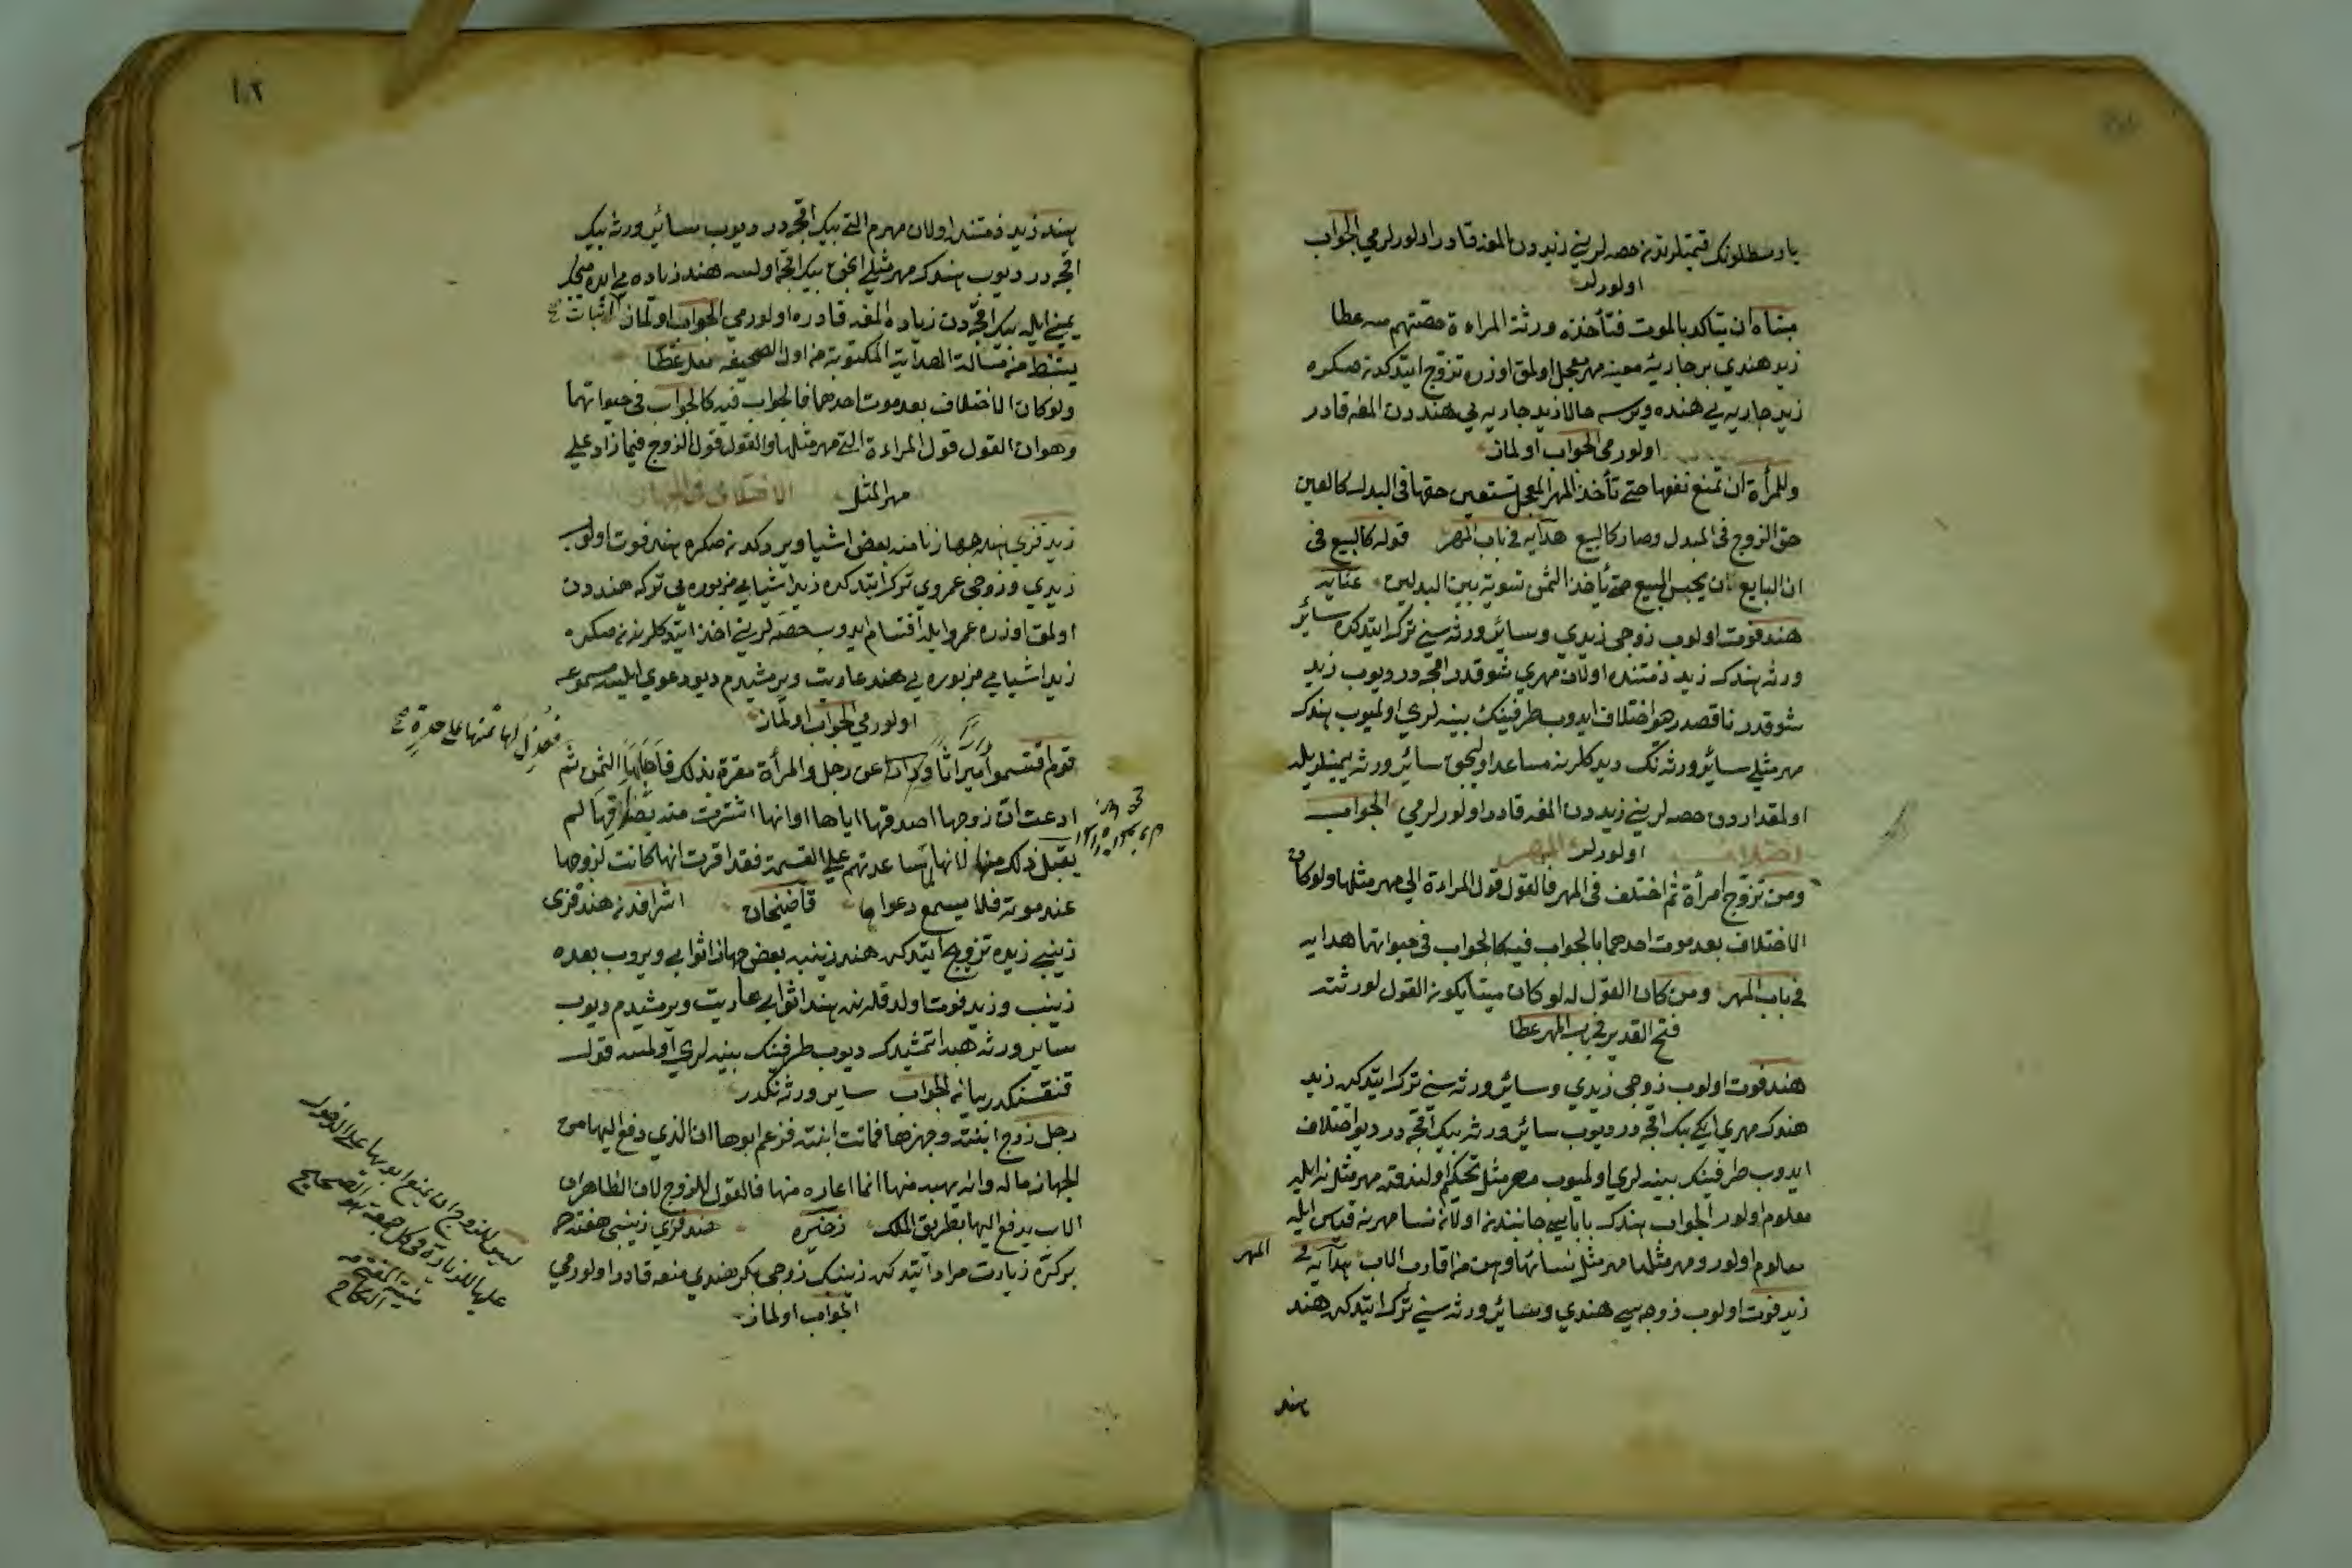 يا وسطلرنك قيمتلرندن حصه لريني زيددن المغه قادر اولورلرمي الجواب
اولورلر
مبناه ان يتأكد بالموت فتأخذ ورثة المراءة حصتهم منه عطا
زيد هندي بر جاريهٔ معينه مهر معجل اولمق اوزره تزوج ايتدكدن صكره
زيد جاريه يي هنده ويرسه حالا زيد جاريه يي هنددن المغه قادر
اولورمي الجواب اولماز
وللمرأة ان تمنع نفسها حتى تأخذ المهر المعجل لتعين حقها في البدل كما تعين
حق الزوج في المبدل وصار كالبيع هدايه في باب المهر قوله كالبيع في
ان البايع ان يحبس المبيع حتى يأخذ الثمن تسوية بين البدلين عنايه
هند فوت اولوب زوجي زيدي وساير ورثه سني ترك ايتدكده ساير
ورثه هندك زيد ذمتنده اولان مهري شو قدر اقچه در ديوب زيد
شو قدر ناقصدر ديو اختلاف ايدوب طرفينك بينه لري اولميوب هندك
مهر مثلي ساير ورثه نك ديدكلرينه مساعد اوليجق ساير ورثه يمينلريله
اول مقداردن حصه لريني زيددن المغه قادر اولورلرمي الجواب
اولورلر
ومن تزوج امرأة ثم اختلف في المهر فالقول قول المراءة الى مهر مثلها ولو كان
الاختلاف بعد موت احدهما فالجواب فيه كالجواب في حيوتهما هدايه
في باب المهر ومن كان القول له لو كان ميتا يكون القول لورثته
فتح القدير في باب المهر عطا
هند فوت اولوب زوجي زيدي وساير ورثه سني ترك ايتدكده زيد
هندك مهري ايكي بيك اقچه در ديوب ساير ورثه بيك اقچه در ديو اختلاف
ايدوب طرفينك بينه لري اولميوب مهر مثل تحكيم اولندقده مهر مثل نه ايله
معلوم اولور الجواب هندك باباسي جانبندن اولان نسا مهرينه قياس ايله
معلوم اولور ومهر مثلها مهر مثل نسائها وهن من اقارب الاب هدايه في المهر
زيد فوت اولوب زوجه سي هندي وساير ورثه سني ترك ايتدكده هند
هند
١٠٢
هند زيد ذمتنده اولان مهرم التي بيك اقچه در ديوب ساير ورثه بيك
اقچه در ديوب هندك مهر مثلي انجق بيك اقچه اولسه هند زياده يي
يميني ايله بيك اقچه دن زياده المغه قادره اولورمي الجواب اولماز اثبات
يستنبط من مسألة الهداية المكتوبة من اول الصحيفه بعد عطا
ولو كان الاختلاف بعد موت احدهما فالجواب فيه كالجواب في حيوتهما
وهو ان القول قول المراءة الى مهر مثلها والقول قول الزوج فيما زاد على
مهر المثل الاختلاف في الجهاز
زيد قزي هنده جهاز نامنه بعض اشيا ويردكدن صكره هند فوت اولوب
زيدي وزوجي عمروي ترك ايتدكده زيد اشيا مزبوره يي تركه هنددن
اولمق اوزره عمرو ايله اقتسام ايدوب حصه لريني اخذ ايتدكلرندن صكره
زيد اشيا مزبوره يي هنده عاريت ويرمشيدم ديو دعوي ايليسه مسموعه
اولورمي الجواب اولماز
قوم اقتسموا ميراثا عن رجل والمرأة مقرة بذلك الثمن ثم
ادعت ان زوجها اصدقها اياها او انها اشترت منه بصداقها لم
يقبل ذلك منها لانها لما ساعدتهم على القسمة فقد اقرت انها كانت لزوجها
عند موته فلا يسمع دعواها قاضيخان هند قزي
زينبي زيده تزويج ايتدكده هند زينبه بعض جهاز اثوابي ويروب بعده
زينب وزيد فوت اولدقلرنده هند اثوابي عاريت ويرمشيدم ديوب
ساير ورثه هبه ايتمشيدك ديوب طرفينك بينه لري اولمسه قول
قنقسنكدر بيانه الجواب ساير ورثه نكدر
رجل زوج ابنته وجهزها فماتت ابنته فزعم ابوها ان الذي دفع اليها من
الجهاز ماله وانه لم يهبه منها انما اعاره منها فالقول للزوج لان الظاهر ان
الاب يدفع اليها بطريق الملك ذخيره هند قزي زينبي هفته ده
بر كره زيارت مراد ايتدكده زينبك زوجي بكر هندي منعه قادر اولورمي
الجواب اولماز
ليس للزوج ان يمنع ابويها على الدخول
عليها للزيارة في كل جمعة هو الصحيح
منية المفتي